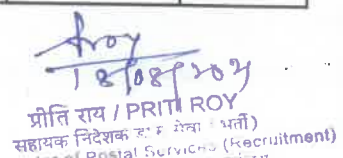 Aroy
18/08/2021
प्रीति राय / PRITI ROY
सहायक निदेशक डा. सेवा भर्ती)
of Postal Services (Recruitment)